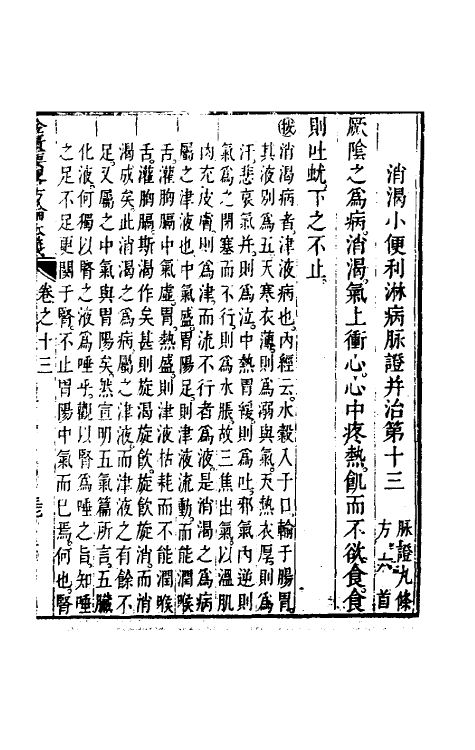 消渴小便利淋病脉證并治第十三
脉證九條
方六首
厥陰之爲病消渴氣上衝心心中疼熱飢而不欲食食
則吐蚘下之不止
按消渴病者津液病也內經云水穀入于口輸于腸胃
其液別爲五天寒衣薄則爲溺與氣天熱衣厚則爲
汗悲哀氣并則爲泣中熱胃緩則爲吐邪氣內逆則
氣爲之閉塞而不行則爲水脹故三焦出氣以溫肌
肉充皮膚則爲津而流不行者爲液是消渴之爲病
屬之津液也中氣盛胃陽足則津液流動而能潤喉
舌灌胸膈中氣虛胃熱盛則津液枯耗而不能潤喉
舌灌胸膈斯渴作矣甚則旋渴旋飲旋飲旋消而消
渴成矣此消渴之爲病屬之津液而津液之有餘不
足又屬之中氣與胃陽矣然宣明五氣篇所言五臟
化液何獨以腎之液爲唾乎觀以腎爲唾之旨知唾
之足不足更關于腎不止胃陽中氣而已焉何也腎
卷之十三